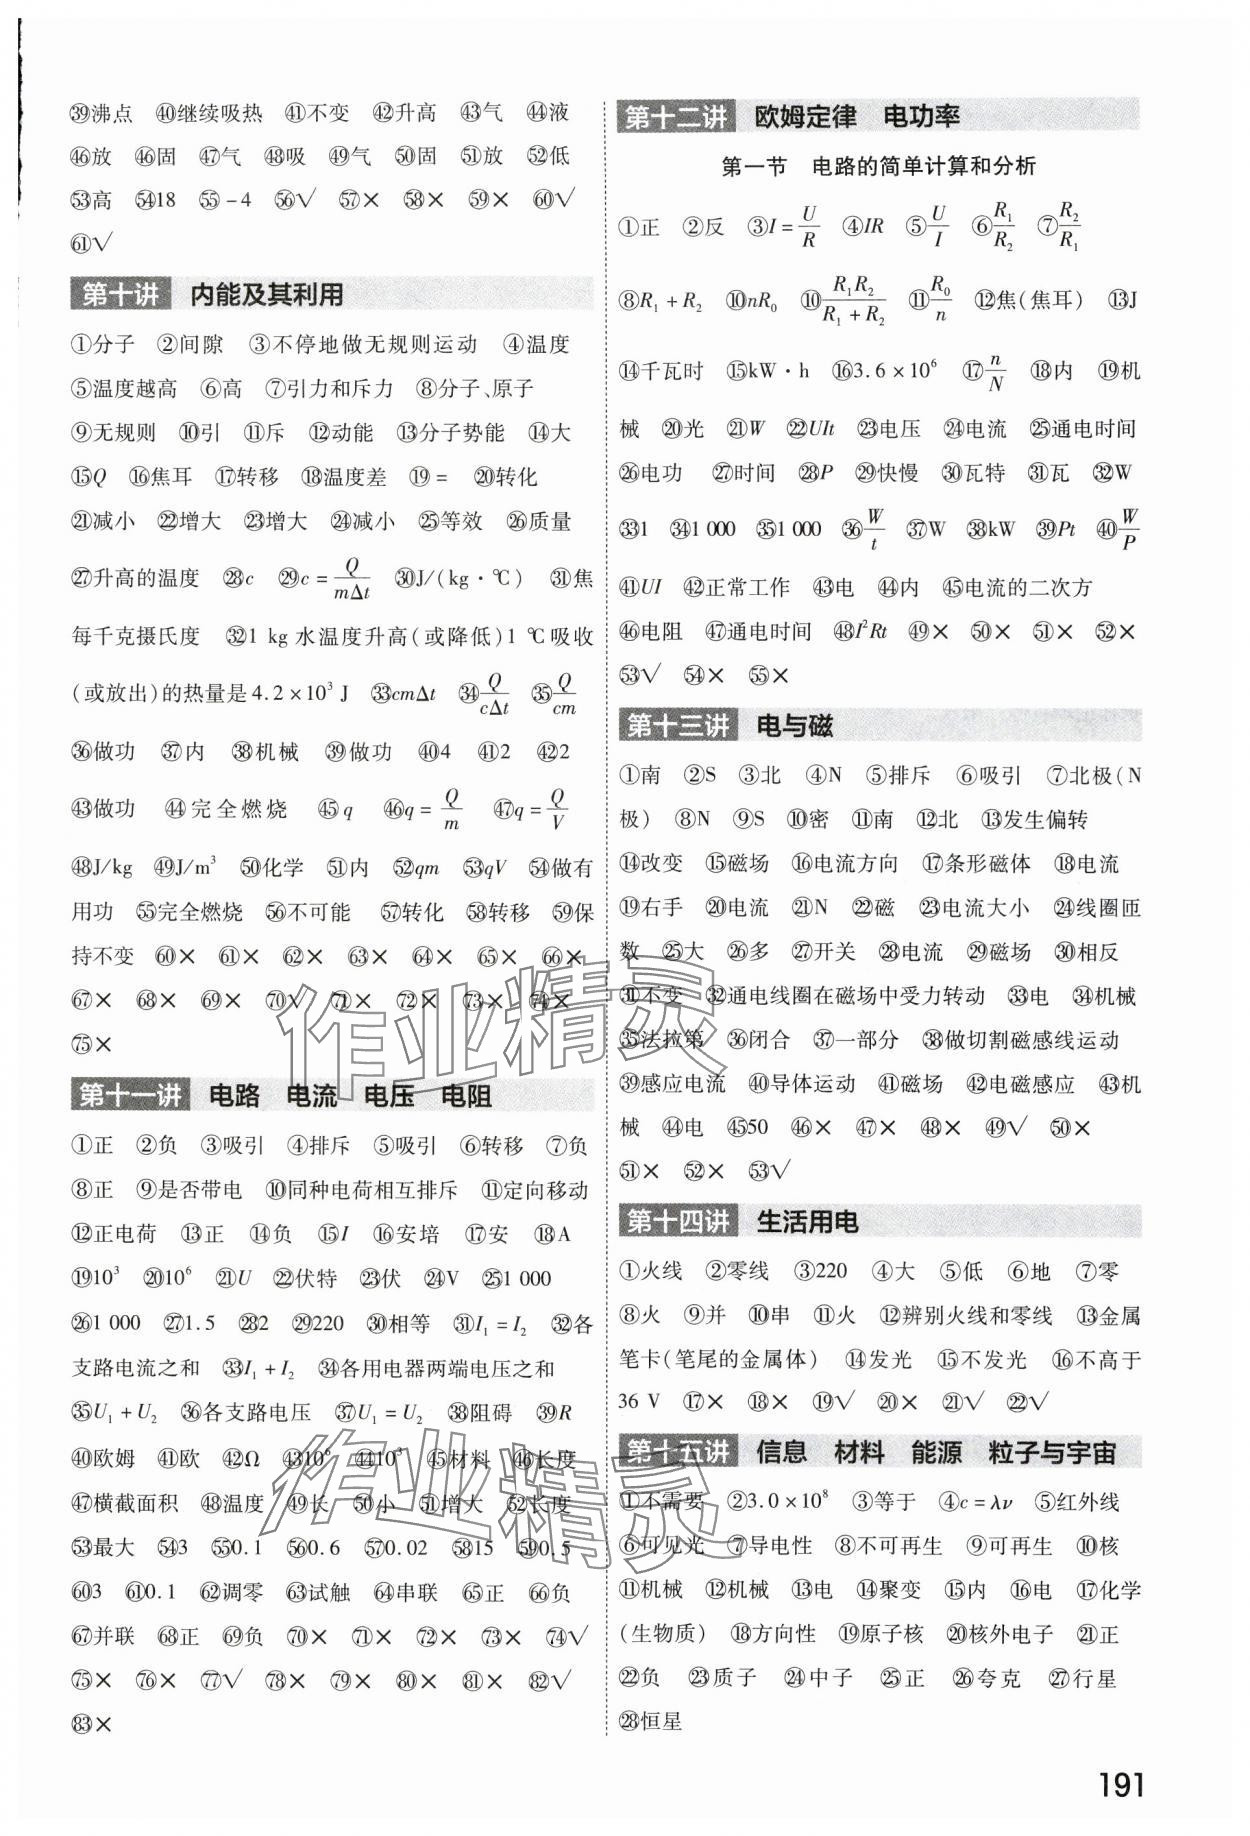 ㊴沸点 ㊵继续吸热 ㊶不变 ㊷升高 ㊸气 ㊹液
㊻放 ㊻固 ㊼气 ㊽吸 ㊾气 ㊿固 (51)放 (52)低
(53)高 (54)18 (55)-4 (56)√ (57)× (58)× (59)× (60)√
(61)√
第十讲 内能及其利用
①分子 ②间隙 ③不停地做无规则运动 ④温度
⑤温度越高 ⑥高 ⑦引力和斥力 ⑧分子、原子
⑨无规则 ⑩引 ⑪斥 ⑫动能 ⑬分子势能 ⑭大
⑮Q ⑯焦耳 ⑰转移 ⑱温度差 ⑲= ⑳转化
㉑减小 ㉒增大 ㉓增大 ㉔减小 ㉕等效 ㉖质量
㉗升高的温度 ㉘c ㉙c=Q/(mΔt) ㉚J/(kg·℃) ㉛焦
每千克摄氏度 ㉜1 kg 水温度升高(或降低)1 ℃吸收
(或放出)的热量是4.2×10³ J ㉝cmΔt ㉞Q/(cΔt) ㉟Q/(cm)
㊱做功 ㊲内 ㊳机械 ㊴做功 ㊵4 ㊶2 ㊷2
㊸做功 ㊹完全燃烧 ㊺q ㊻q=Q/m ㊼q=Q/V
㊽J/kg ㊾J/m³ ㊿化学 (51)内 (52)qm (53)qV (54)做有
用功 (55)完全燃烧 (56)不可能 (57)转化 (58)转移 (59)保
持不变 (60)× (61)× (62)× (63)× (64)× (65)× (66)×
(67)× (68)× (69)× (70)√ (71)× (72)× (73)× (74)×
(75)×
第十一讲 电路 电流 电压 电阻
①正 ②负 ③吸引 ④排斥 ⑤吸引 ⑥转移 ⑦负
⑧正 ⑨是否带电 ⑩同种电荷相互排斥 ⑪定向移动
⑫正电荷 ⑬正 ⑭负 ⑮I ⑯安培 ⑰安 ⑱A
⑲10³ ⑳10⁶ ㉑U ㉒伏特 ㉓伏 ㉔V ㉕1 000
㉖1 000 ㉗1.5 ㉘2 ㉙220 ㉚相等 ㉛I₁=I₂ ㉜各
支路电流之和 ㉝I₁+I₂ ㉞各用电器两端电压之和
㉟U₁+U₂ ㊱各支路电压 ㊲U₁=U₂ ㊳阻碍 ㊴R
㊵欧姆 ㊶欧 ㊷Ω ㊸10⁶ ㊹10³ ㊺材料 ㊻长度
㊼横截面积 ㊽温度 ㊾长 ㊿小 (51)增大 (52)长度
(53)最大 (54)3 (55)0.1 (56)0.6 (57)0.02 (58)15 (59)0.5
(60)3 (61)0.1 (62)调零 (63)试触 (64)串联 (65)正 (66)负
(67)并联 (68)正 (69)负 (70)× (71)× (72)× (73)× (74)√
(75)× (76)× (77)√ (78)× (79)× (80)× (81)× (82)√
(83)×
第十二讲 欧姆定律 电功率
第一节 电路的简单计算和分析
①正 ②反 ③I=U/R ④IR ⑤U/I ⑥R₁/R₂ ⑦R₂/R₁
⑧R₁+R₂ ⑩nR₀ ⑩R₁R₂/(R₁+R₂) ⑪R₀/n ⑫焦(焦耳) ⑬J
⑭千瓦时 ⑮kW·h ⑯3.6×10⁶ ⑰n/N ⑱内 ⑲机
械 ⑳光 ㉑W ㉒UIt ㉓电压 ㉔电流 ㉕通电时间
㉖电功 ㉗时间 ㉘P ㉙快慢 ㉚瓦特 ㉛瓦 ㉜W
㉝1 ㉞1 000 ㉟1 000 ㊱W/t ㊲W ㊳kW ㊴Pt ㊵W/P
㊶UI ㊷正常工作 ㊸电 ㊹内 ㊺电流的二次方
㊻电阻 ㊼通电时间 ㊽I²Rt ㊾× ㊿× (51)× (52)×
(53)√ (54)× (55)×
第十三讲 电与磁
①南 ②S ③北 ④N ⑤排斥 ⑥吸引 ⑦北极(N
极) ⑧N ⑨S ⑩密 ⑪南 ⑫北 ⑬发生偏转
⑭改变 ⑮磁场 ⑯电流方向 ⑰条形磁体 ⑱电流
⑲右手 ⑳电流 ㉑N ㉒磁 ㉓电流大小 ㉔线圈匝
数 ㉕大 ㉖多 ㉗开关 ㉘电流 ㉙磁场 ㉚相反
㉛不变 ㉜通电线圈在磁场中受力转动 ㉝电 ㉞机械
㉟法拉第 ㊱闭合 ㊲一部分 ㊳做切割磁感线运动
㊴感应电流 ㊵导体运动 ㊶磁场 ㊷电磁感应 ㊸机
械 ㊹电 ㊺50 ㊻× ㊼× ㊽× ㊾√ ㊿×
(51)× (52)× (53)√
第十四讲 生活用电
①火线 ②零线 ③220 ④大 ⑤低 ⑥地 ⑦零
⑧火 ⑨并 ⑩串 ⑪火 ⑫辨别火线和零线 ⑬金属
笔卡(笔尾的金属体) ⑭发光 ⑮不发光 ⑯不高于
36 V ⑰× ⑱× ⑲√ ⑳× ㉑√ ㉒√
第十五讲 信息 材料 能源 粒子与宇宙
①不需要 ②3.0×10⁸ ③等于 ④c=λν ⑤红外线
⑥可见光 ⑦导电性 ⑧不可再生 ⑨可再生 ⑩核
⑪机械 ⑫机械 ⑬电 ⑭聚变 ⑮内 ⑯电 ⑰化学
(生物质) ⑱方向性 ⑲原子核 ⑳核外电子 ㉑正
㉒负 ㉓质子 ㉔中子 ㉕正 ㉖夸克 ㉗行星
㉘恒星
191
作业精灵
作业精灵